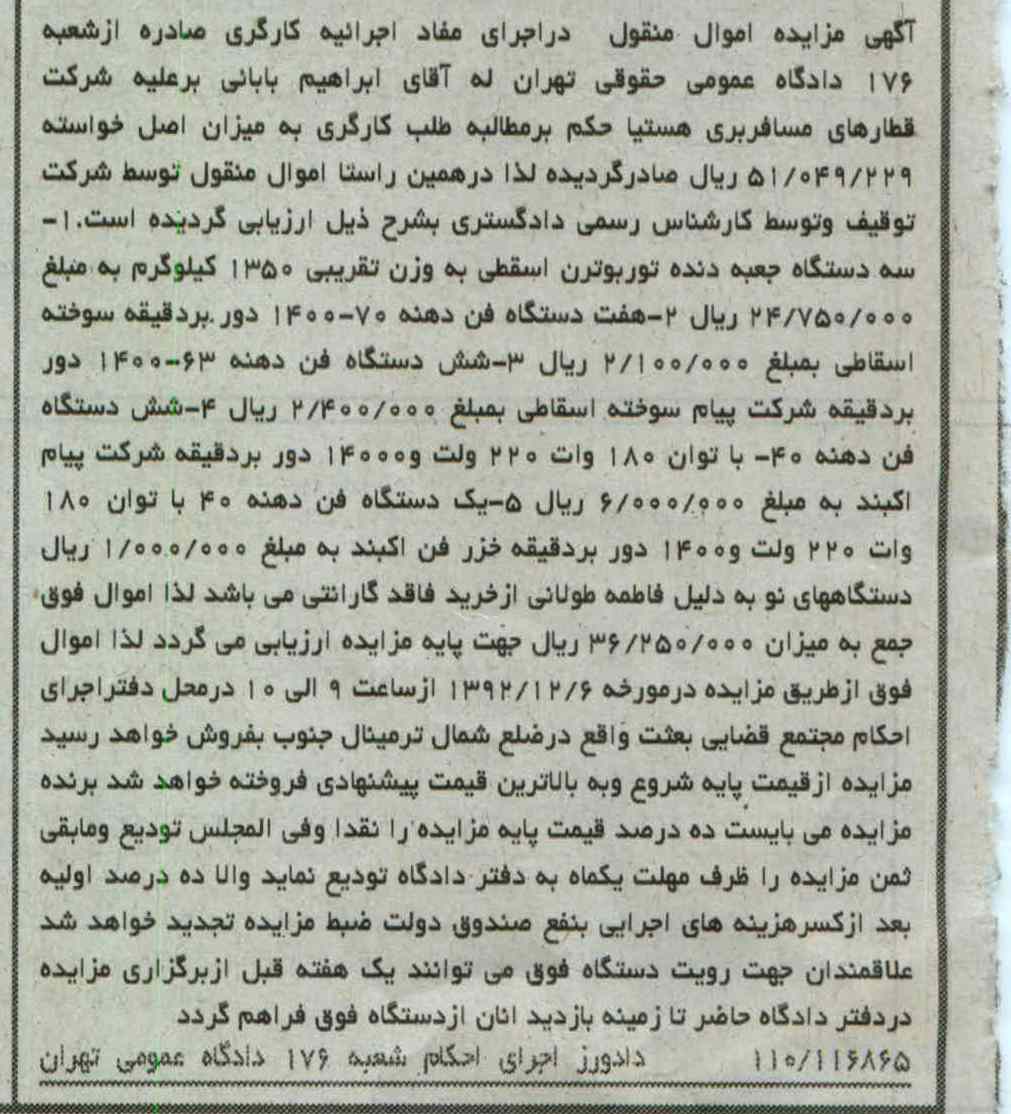 آگهی مزایده اموال منقول دراجرای مفاد اجرائیه کارگری صادره ازشعبه
۱۷۶ دادگاه عمومی حقوقی تهران له آقای ابراهیم بابائی برعلیه شرکت
قطارهای مسافربری هستیا حکم برمطالبه طلب کارگری به میزان اصل خواسته
۵۱/۰۴۹/۲۲۹ ریال صادرگردیده لذا درهمین راستا اموال منقول توسط شرکت
توقیف وتوسط کارشناس رسمی دادگستری بشرح ذیل ارزیابی گردیده است.۱-
سه دستگاه جعبه دنده توربوترن اسقطی به وزن تقریبی ۱۳۵۰ کیلوگرم به مبلغ
۲۴/۷۵۰/۰۰۰ ریال ۲-هفت دستگاه فن دهنه ۷۰-۱۴۰۰ دور بردقیقه سوخته
اسقاطی بمبلغ ۲/۱۰۰/۰۰۰ ریال ۳-شش دستگاه فن دهنه ۶۳-۱۴۰۰ دور
بردقیقه شرکت پیام سوخته اسقاطی بمبلغ ۲/۴۰۰/۰۰۰ ریال ۴-شش دستگاه
فن دهنه ۴۰- با توان ۱۸۰ وات ۲۲۰ ولت و۱۴۰۰۰ دور بردقیقه شرکت پیام
اکبند به مبلغ ۶/۰۰۰/۰۰۰ ریال ۵-یک دستگاه فن دهنه ۴۰ با توان ۱۸۰
وات ۲۲۰ ولت و۱۴۰۰ دور بردقیقه خزر فن اکبند به مبلغ ۱/۰۰۰/۰۰۰ ریال
دستگاههای نو به دلیل فاطمه طولانی ازخرید فاقد گارانتی می باشد لذا اموال فوق
جمع به میزان ۳۶/۲۵۰/۰۰۰ ریال جهت پایه مزایده ارزیابی می گردد لذا اموال
فوق ازطریق مزایده درمورخه ۱۳۹۲/۱۲/۶ ازساعت ۹ الی ۱۰ درمحل دفتراجرای
احکام مجتمع قضایی بعثت واقع درضلع شمال ترمینال جنوب بفروش خواهد رسید
مزایده ازقیمت پایه شروع وبه بالاترین قیمت پیشنهادی فروخته خواهد شد برنده
مزایده می بایست ده درصد قیمت پایه مزایده را نقدا وفی المجلس تودیع ومابقی
ثمن مزایده را ظرف مهلت یکماه به دفتر دادگاه تودیع نماید والا ده درصد اولیه
بعد ازکسرهزینه های اجرایی بنفع صندوق دولت ضبط مزایده تجدید خواهد شد
علاقمندان جهت رویت دستگاه فوق می توانند یک هفته قبل ازبرگزاری مزایده
دردفتر دادگاه حاضر تا زمینه بازدید انان ازدستگاه فوق فراهم گردد
۱۱۰/۱۱۶۸۶۵ دادورز اجرای احکام شعبه ۱۷۶ دادگاه عمومی تهران